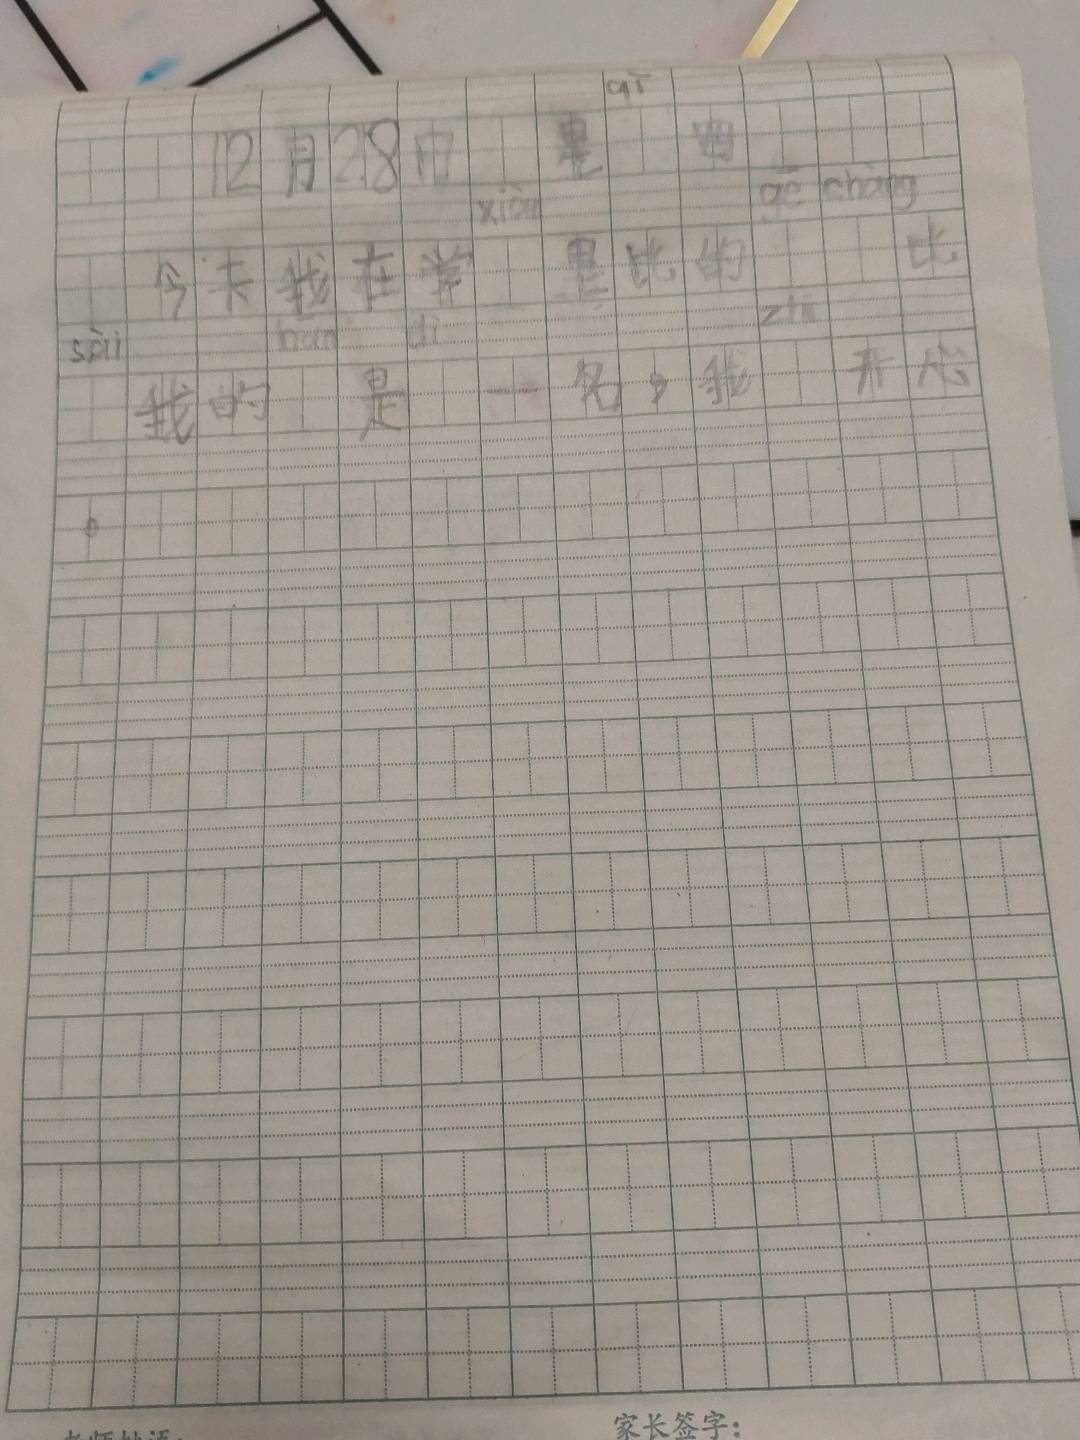 qī
12月28日 星 四
xiào gē chàng
今天我在学 里比的 比
sài hán dì zhēn
我的是 一名，我 开心
。
家长签字：